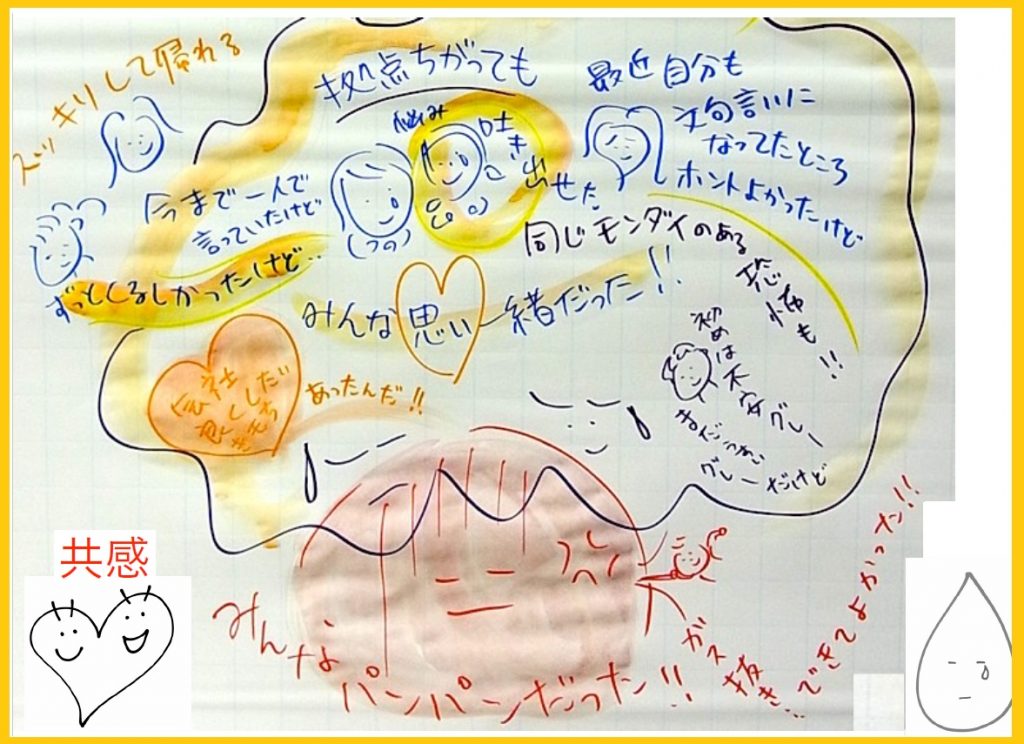 スッキリして帰れる
拠点ちがっても
悩み
吐き出せた
(つの)
最近自分も
文句言いに
なってたところ
ホントよかったけど
今まで一人で
言っていたけど
ずっとくるしかったけど…
同じモンダイのある
みんな思い一緒だった!!
初めは不安グレー
グレーだけど
会社
きもち
あったんだ!!
共感
みんな
パンパンだった!!
ガス抜き…
できてよかった!!